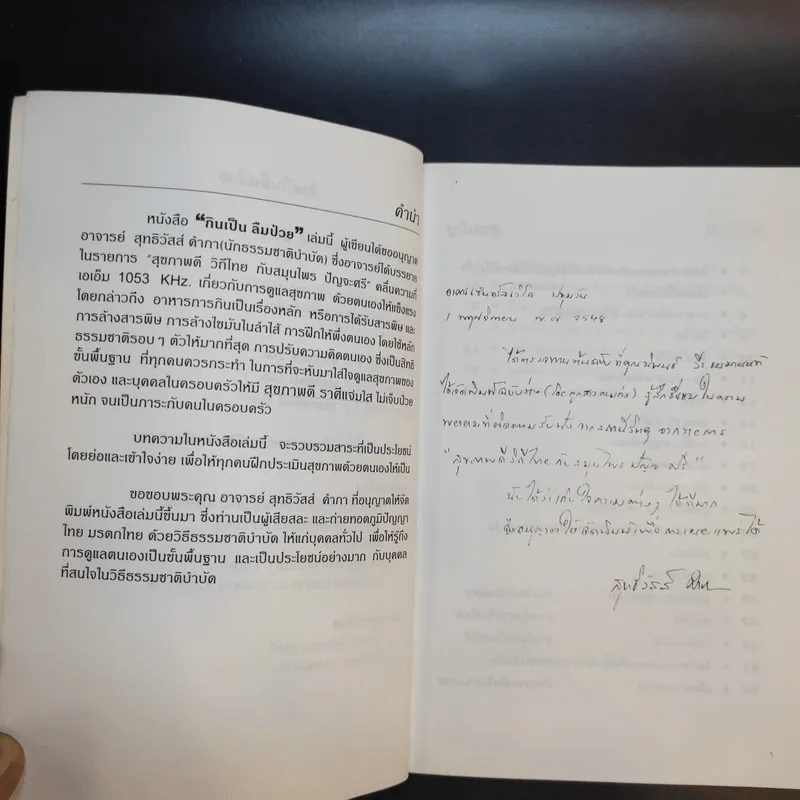 คำนำ
หนังสือ “กินเป็น ลืมป่วย” เล่มนี้ ผู้เขียนได้ขออนุญาต
อาจารย์ สุทธิวัสส์ คำภา(นักธรรมชาติบำบัด) ซึ่งอาจารย์ได้บรรยาย
ในรายการ “สุขภาพดี วิถีไทย กับสมุนไพร ปัญจะศรี” คลื่นความถี่
เอเอ็ม 1053 KHz. เกี่ยวกับการดูแลสุขภาพ ด้วยตนเองให้แข็งแรง
โดยกล่าวถึง อาหารการกินเป็นเรื่องหลัก หรือการได้รับสารพิษ และ
การล้างสารพิษ การล้างไขมันในลำไส้ การฝึกให้พึ่งตนเอง โดยใช้หลัก
ธรรมชาติรอบ ๆ ตัวให้มากที่สุด การปรับความคิดตนเอง ซึ่งเป็นสิทธิ
ขั้นพื้นฐาน ที่ทุกคนควรกระทำ ในการที่จะหันมาใส่ใจดูแลสุขภาพของ
ตัวเอง และบุคคลในครอบครัวให้มี สุขภาพดี ราศีแจ่มใส ไม่เจ็บป่วย
หนัก จนเป็นภาระกับคนในครอบครัว
บทความในหนังสือเล่มนี้ จะรวบรวมสาระที่เป็นประโยชน์
โดยย่อและเข้าใจง่าย เพื่อให้ทุกคนฝึกประเมินสุขภาพด้วยตนเองให้เป็น
ขอขอบพระคุณ อาจารย์ สุทธิวัสส์ คำภา ที่อนุญาตให้จัด
พิมพ์หนังสือเล่มนี้ขึ้นมา ซึ่งท่านเป็นผู้เสียสละ และถ่ายทอดภูมิปัญญา
ไทย มรดกไทย ด้วยวิธีธรรมชาติบำบัด ให้แก่บุคคลทั่วไป เพื่อให้รู้ถึง
การดูแลตนเองเป็นขั้นพื้นฐาน และเป็นประโยชน์อย่างมาก กับบุคคล
ที่สนใจในวิธีธรรมชาติบำบัด
ปทุมวัน
1 พฤศจิกายน พ ศ 2548
ได้ตรวจทานต้นฉบับ ที่คุณ
ได้จัดพิมพ์ฉบับร่าง รู้สึกชื่นชม ในความ
พยายามที่ติดตามรับฟัง จากสถานีวิทยุ จากรายการ
"สุขภาพดี วิถีไทย กับสมุนไพร ปัญจะศรี"
นับได้ว่าเก็บใจความต่างๆ ได้ดีมาก
จึงอนุญาตให้จัดพิมพ์เพื่อการเผยแพร่ได้
สุทธิวัสส์ คำภา